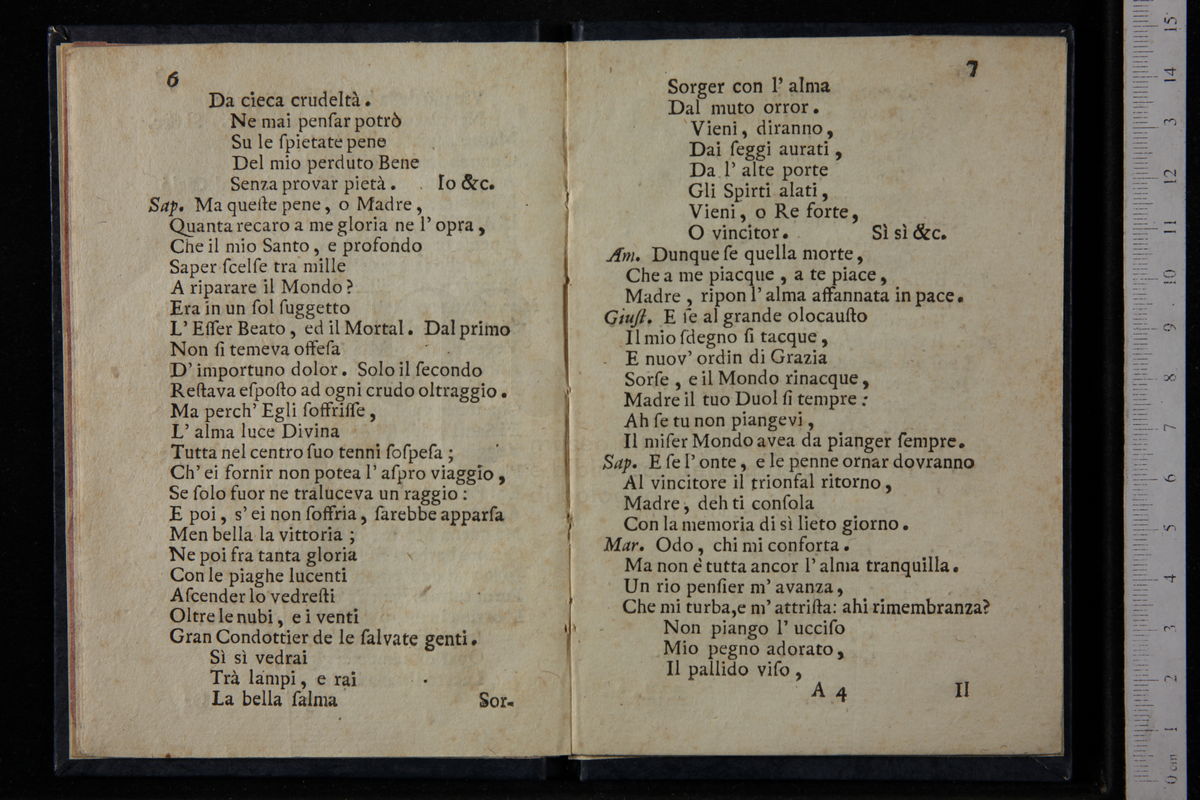 6
Da cieca crudeltà.
Ne mai penſar potrò
Su le ſpietate pene
Del mio perduto Bene
Senza provar pietà. Io &c.
Sap. Ma queſte pene, o Madre,
Quanta recaro a me gloria ne l' opra,
Che il mio Santo, e profondo
Saper ſcelſe tra mille
A riparare il Mondo?
Era in un ſol ſuggetto
L' Eſſer Beato, ed il Mortal. Dal primo
Non ſi temeva offeſa
D' importuno dolor. Solo il ſecondo
Reſtava eſpoſto ad ogni crudo oltraggio.
Ma perch' Egli ſoffriſſe,
L' alma luce Divina
Tutta nel centro ſuo tenni ſoſpeſa;
Ch' ei fornir non potea l' aſpro viaggio,
Se ſolo fuor ne traluceva un raggio:
E poi, s' ei non ſoffria, ſarebbe apparſa
Men bella la vittoria;
Ne poi fra tanta gloria
Con le piaghe lucenti
Aſcender lo vedreſti
Oltre le nubi, e i venti
Gran Condottier de le ſalvate genti.
Sì sì vedrai
Trà lampi, e rai
La bella ſalma
Sor-
7
Sorger con l' alma
Dal muto orror.
Vieni, diranno,
Dai ſeggi aurati,
Da l' alte porte
Gli Spirti alati,
Vieni, o Re forte,
O vincitor. Sì sì &c.
Am. Dunque ſe quella morte,
Che a me piacque, a te piace,
Madre, ripon l' alma affannata in pace.
Giuſt. E ſe al grande olocauſto
Il mio ſdegno ſi tacque,
E nuov' ordin di Grazia
Sorſe, e il Mondo rinacque,
Madre il tuo Duol ſi tempre:
Ah ſe tu non piangevi,
Il miſer Mondo avea da pianger ſempre.
Sap. E ſe l' onte, e le penne ornar dovranno
Al vincitore il trionfal ritorno,
Madre, deh ti conſola
Con la memoria di sì lieto giorno.
Mar. Odo, chi mi conforta.
Ma non è tutta ancor l' alma tranquilla.
Un rio penſier m' avanza,
Che mi turba,e m' attriſta: ahi rimembranza?
Non piango l' ucciſo
Mio pegno adorato,
Il pallido viſo,
A 4 Il